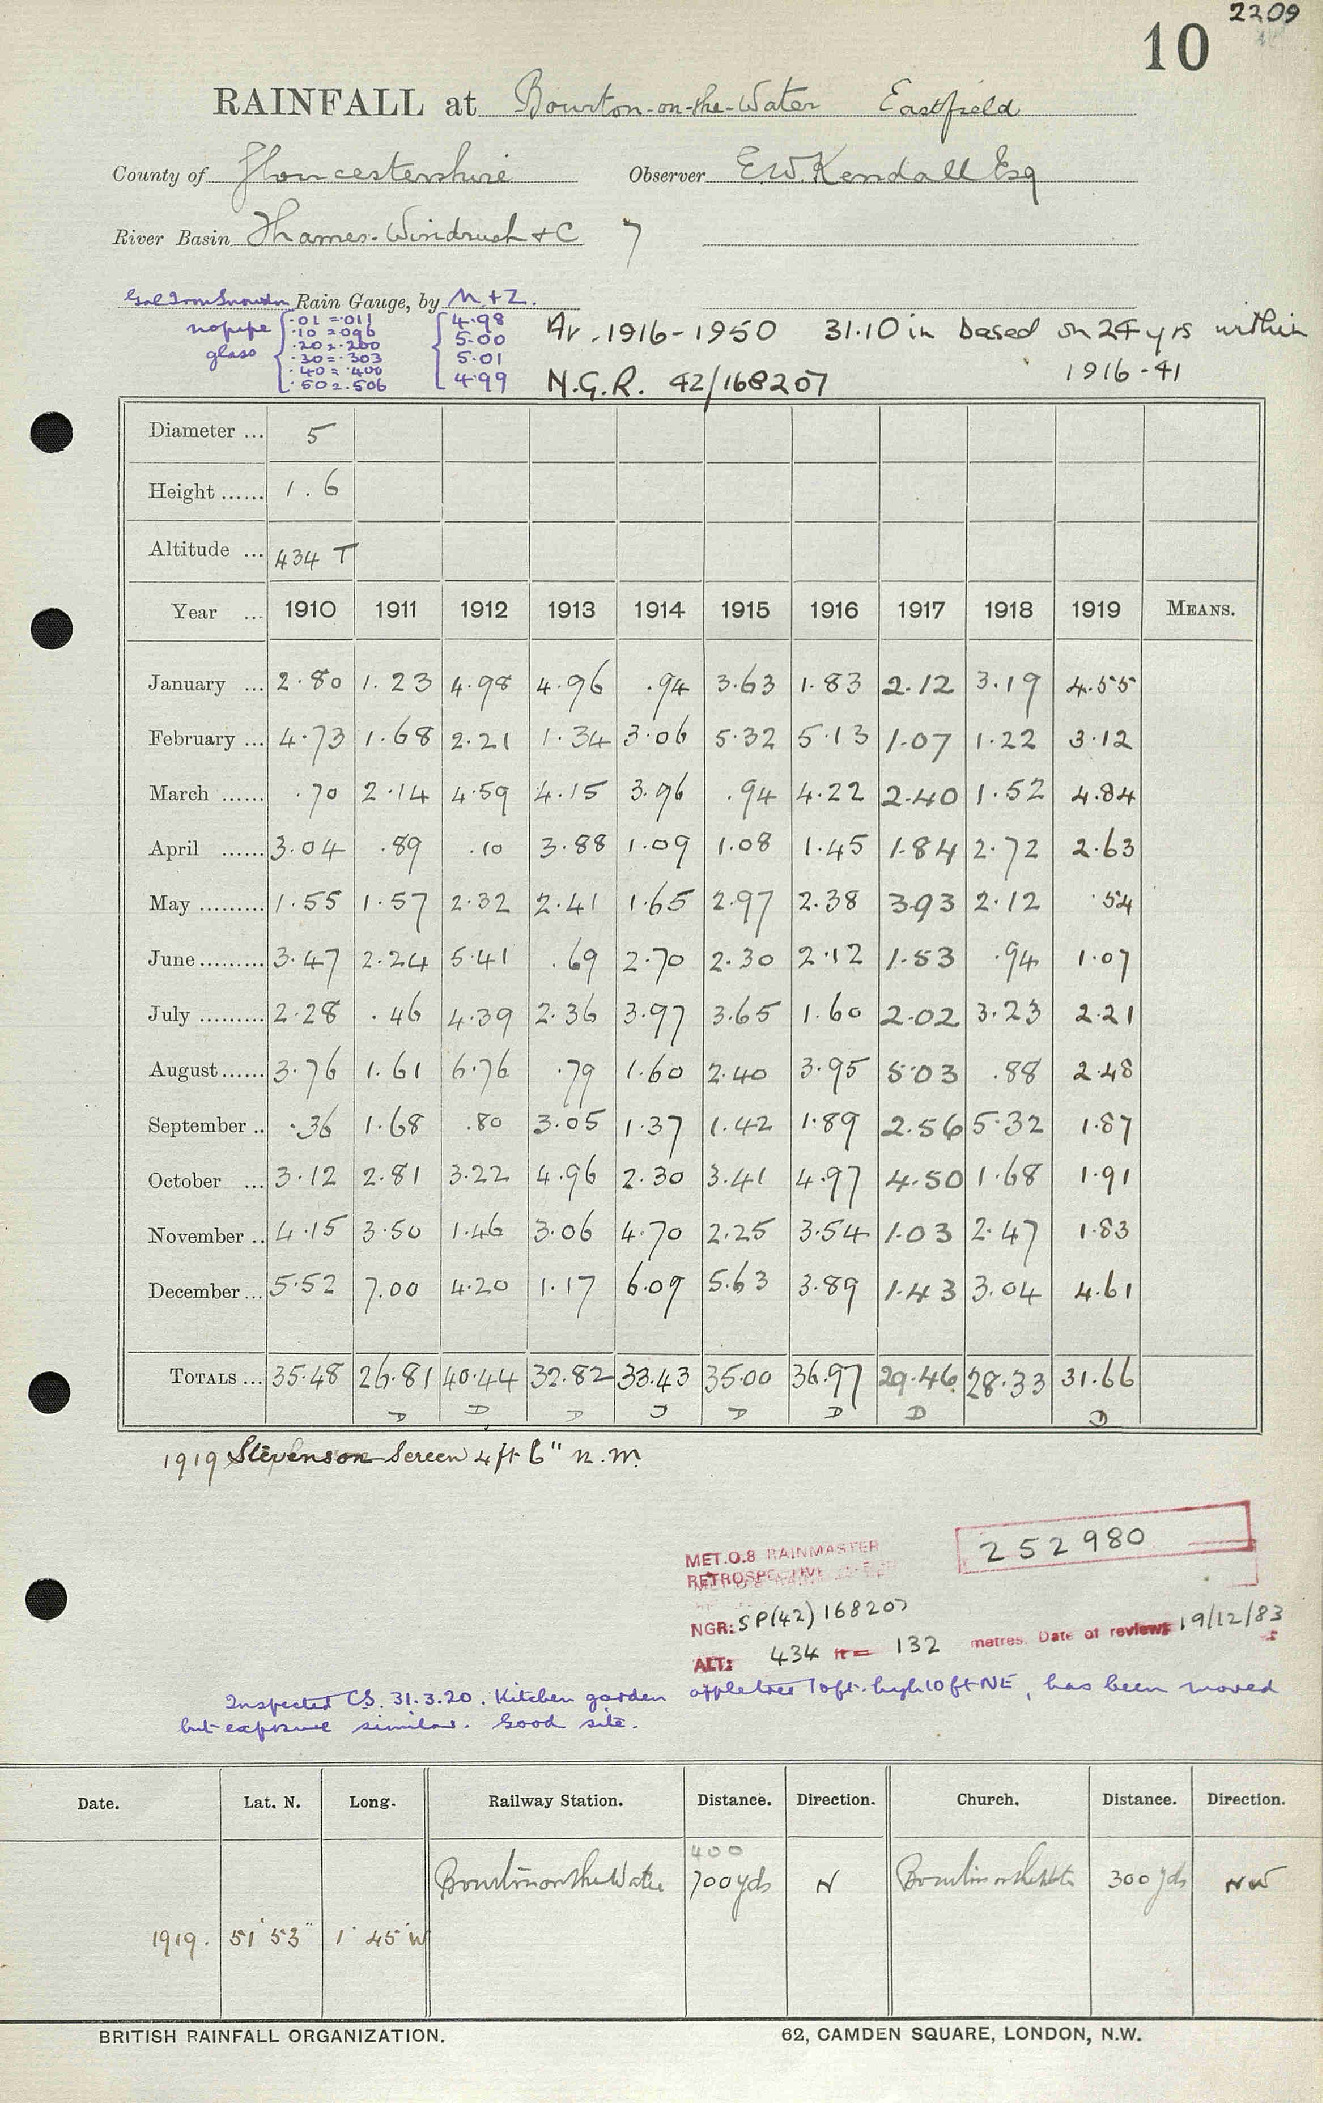 2209
10
RAINFALL at Bourton-on-the-Water Eastfield
County of Gloucestershire Observer E.W. Kendall Esq
River Basin Thames-Windrush + C 7
Gal Iron Snowdon Rain Gauge, by N+Z.
no pipe glass
.01 = .011
.10 = .096
.20 = .200
.30 = .303
.40 = .400
.50 = .506
4.98
5.00
5.01
4.99
Av. 1916-1950 31.10 in based on 24 yrs within
1916-41
N.G.R. 42/168207
Diameter ... 5
Height ...... 1.6
Altitude ... 434 T
Year ... 1910 1911 1912 1913 1914 1915 1916 1917 1918 1919 MEANS.
January ... 2.80 1.23 4.98 4.96 .94 3.63 1.83 2.12 3.19 4.55
February ... 4.73 1.68 2.21 1.34 3.06 5.32 5.13 1.07 1.22 3.12
March ...... .70 2.14 4.59 4.15 3.96 .94 4.22 2.40 1.52 4.84
April ...... 3.04 .89 .10 3.88 1.09 1.08 1.45 1.84 2.72 2.63
May ......... 1.55 1.57 2.32 2.41 1.65 2.97 2.38 3.93 2.12 .54
June ......... 3.47 2.24 5.41 .69 2.70 2.30 2.12 1.53 .94 1.07
July ......... 2.28 .46 4.39 2.36 3.97 3.65 1.60 2.02 3.23 2.21
August ...... 3.76 1.61 6.76 .79 1.60 2.40 3.95 5.03 .88 2.48
September .. .36 1.68 .80 3.05 1.37 1.42 1.89 2.56 5.32 1.87
October ... 3.12 2.81 3.22 4.96 2.30 3.41 4.97 4.50 1.68 1.91
November .. 4.15 3.50 1.46 3.06 4.70 2.25 3.54 1.03 2.47 1.83
December ... 5.52 7.00 4.20 1.17 6.09 5.63 3.89 1.43 3.04 4.61
TOTALS ... 35.48 26.81 40.44 32.82 33.43 35.00 36.97 29.46 28.33 31.66
D D D D D D D D
1919 Stevenson Screen 4ft 6" N.W.
MET.O.8 RAINMASTER
RETROSPECTIVE
252980
NGR: SP(42) 168207
ALT: 434 ft = 132 metres. Date of review: 19/12/83
Inspected CS. 31.3.20. Kitchen garden apple tree 10ft. high 10ft NE, has been moved
but exposure similar. Good site.
Date. Lat. N. Long. Railway Station. Distance. Direction. Church. Distance. Direction.
400
Bourton on the Water 700 yds N Bourton on the Water 300 yds NW
1919. 51° 53" 1° 45' W
BRITISH RAINFALL ORGANIZATION. 62, CAMDEN SQUARE, LONDON, N.W.